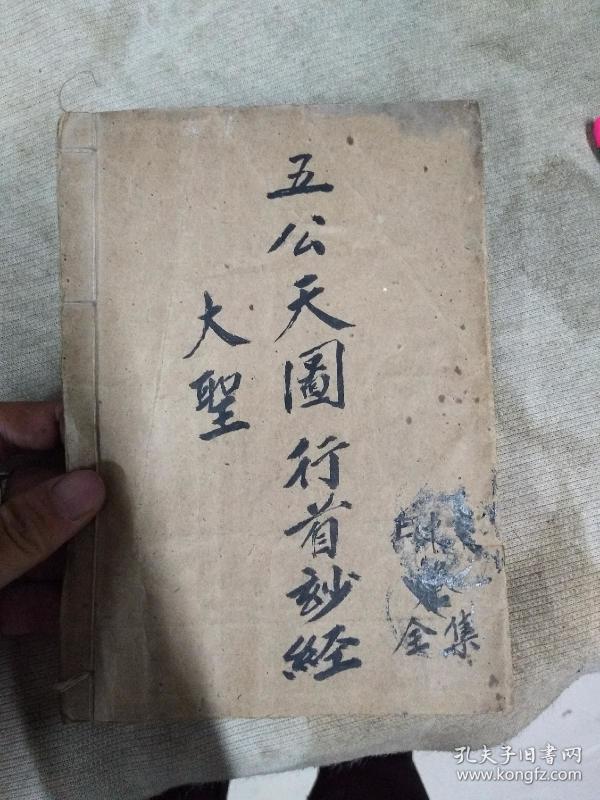 五公天圖行首玅経
大聖
全集
孔夫子旧书网
www.kongfz.com